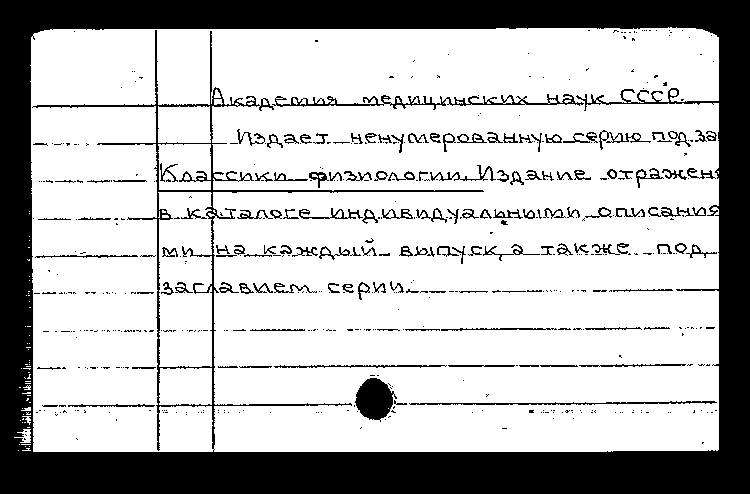 Академия медицинских наук СССР.
Издает ненумерованную серию под за
Классики физиологии. Издание отражено
в каталоге индивидуальными описания
ми на каждый выпуск, а также под
заглавием серии.